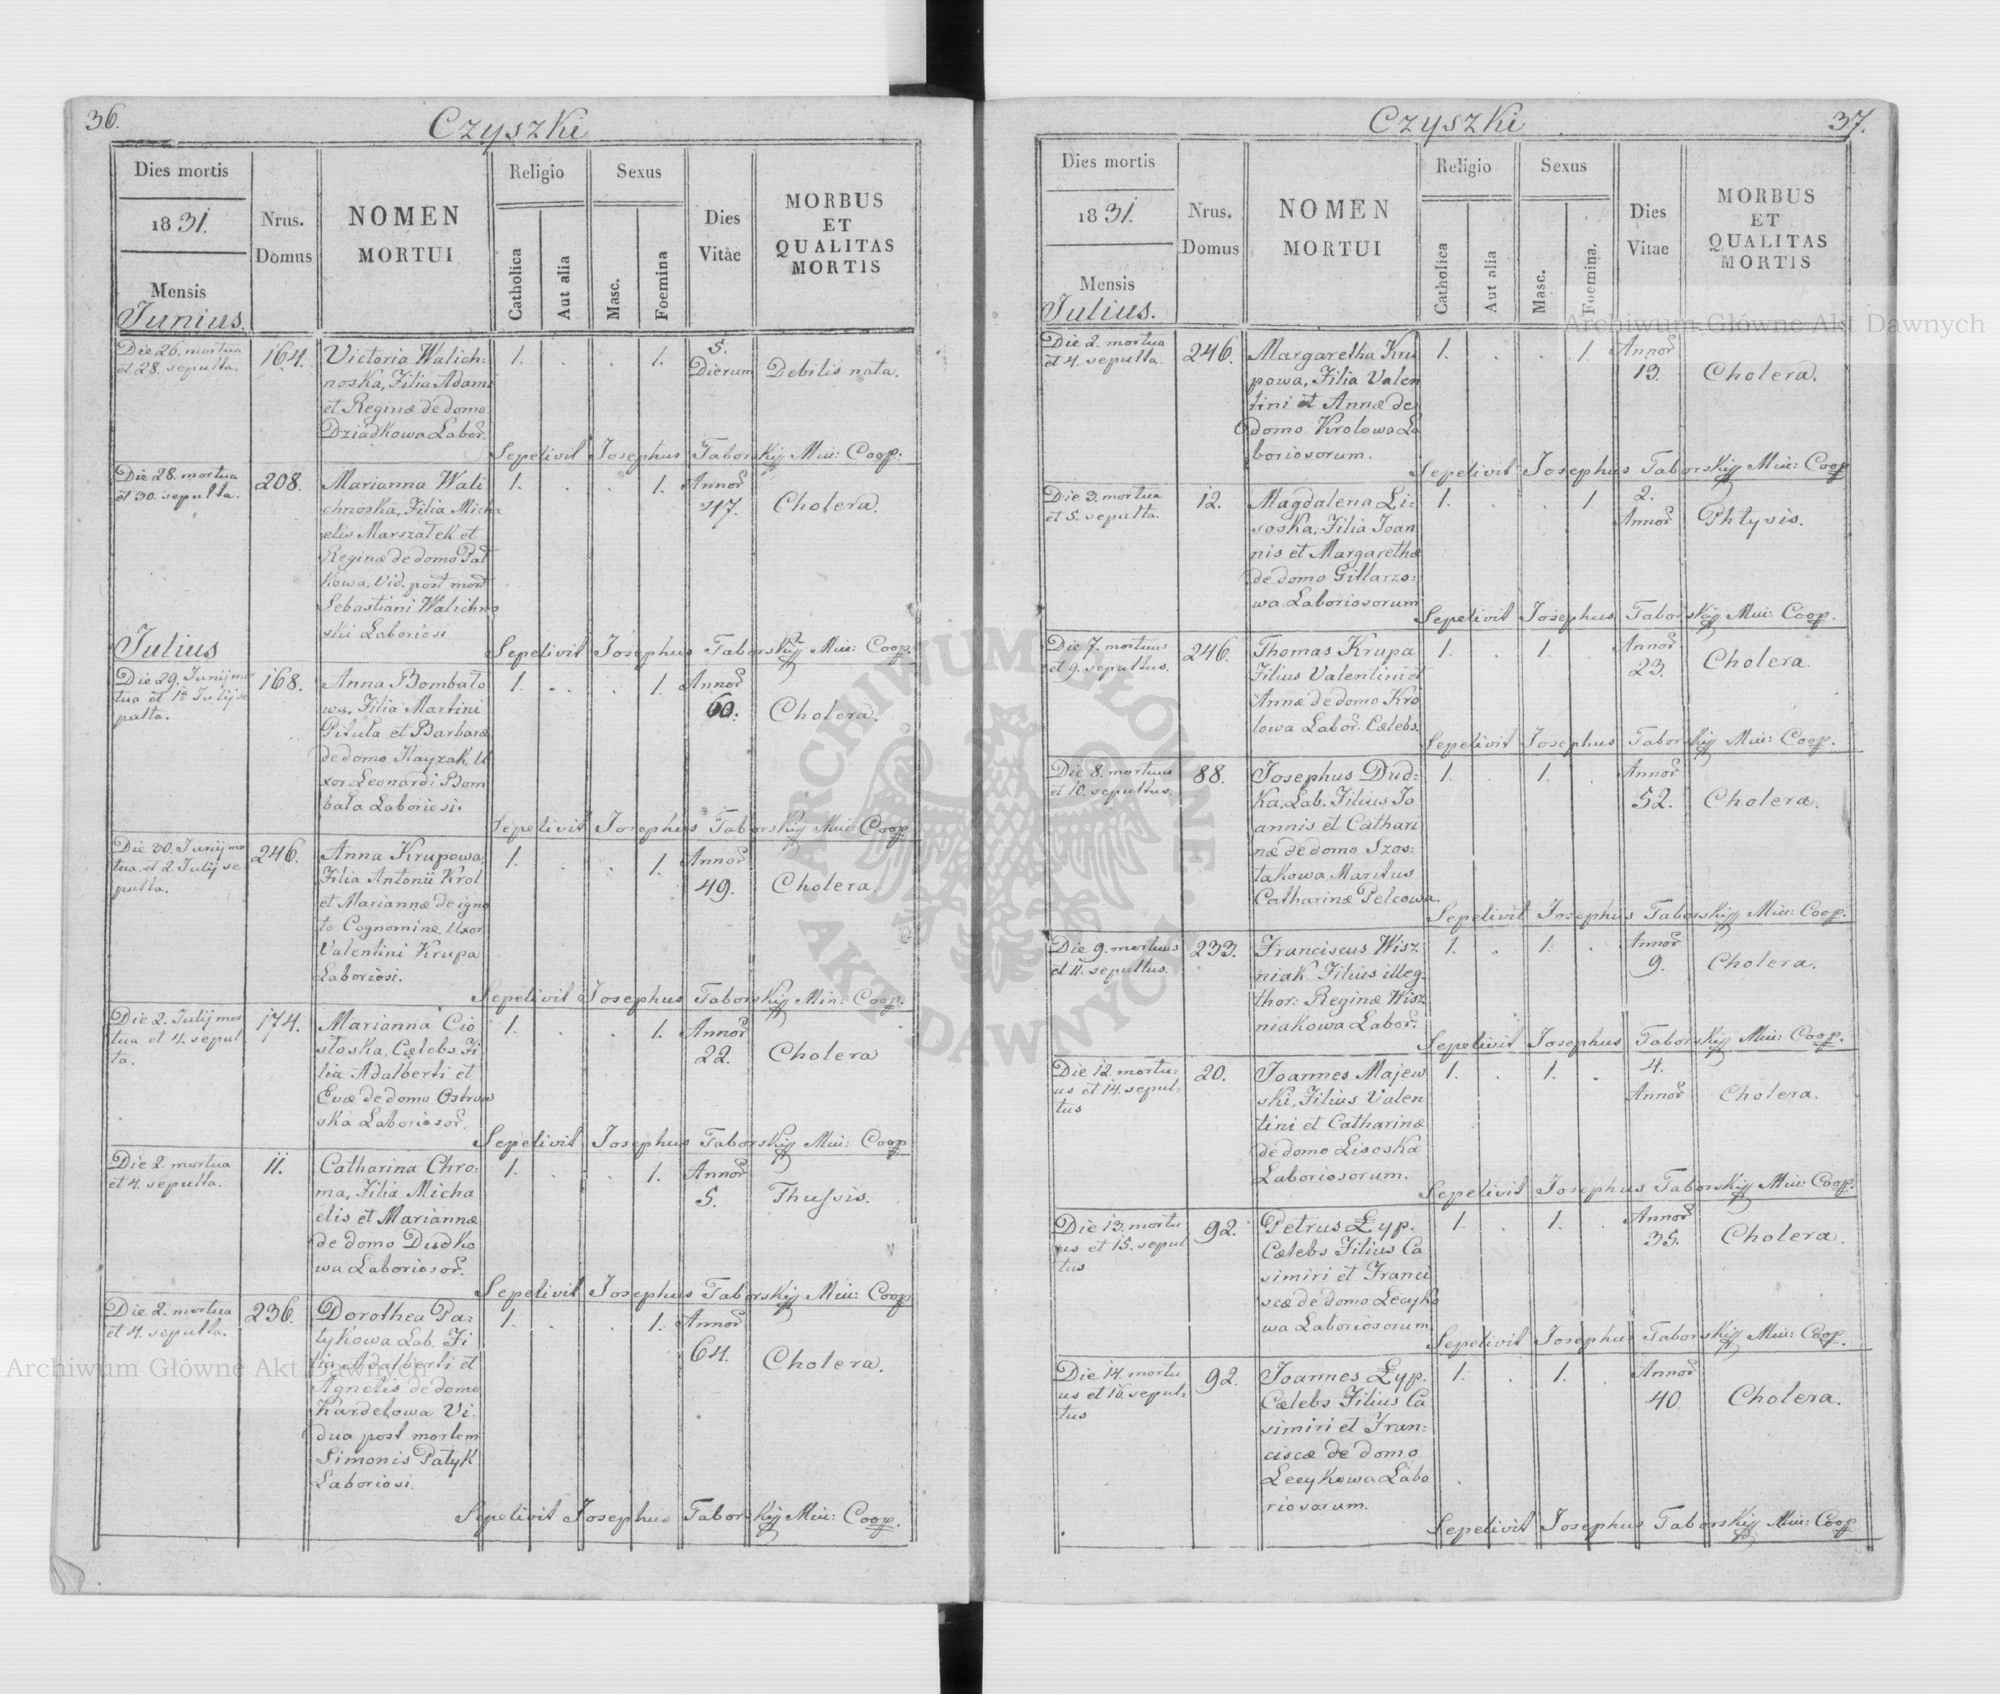 36.
Czyszki
Dies mortis
1831.
Mensis
Junius.
Nrus.
Domus
NOMEN
MORTUI
Religio
Catholica
Aut alia
Sexus
Masc.
Foemina
Dies
Vitae
MORBUS
ET
QUALITAS
MORTIS
Die 26. mortua
et 28. sepulta.
164.
Victoria Walich:
noska, Filia Adami
et Reginæ de domo
Dziadkowa Labor.
1. . . 1.
5.
Dierum
Debilis nata.
Sepelivit Josephus Taborskij Mui: Coop:
Die 28. mortua
et 30. sepulta.
208.
Marianna Wali
chnoska, Filia Micha
elis Marszałek et
Reginæ de domo Pał
kowa, Vid. post mort
Sebastiani Walichno
ski Laboriosi
1. . . 1.
Annor
47.
Cholera.
Sepelivit Josephus Taborskij Mui: Coop.
Julius
Die 29. Junij mor
tua et 1a Julij se
pulta.
168.
Anna Bombało
wa, Filia Martini
Pituła et Barbaræ
de domo Kayzak, U
xor Leonardi Bom
bała Laboriosi.
1. . . 1.
Annor
60.
Cholera.
Sepelivit Josephus Taborskij Mui: Coop.
Die 30. Junij mo
tua et 2. Julij se
pulta.
246.
Anna Krupowa,
Filia Antonii Krol
et Mariannæ de igno
to Cognomine Uxor
Valentini Krupa
Laboriosi.
1. . . 1.
Annor
49.
Cholera.
Sepelivit Josephus Taborskij Min: Coop.
Die 2. Julij mor
tua et 4. sepul
ta.
174.
Marianna Cio
słoska, Cælebs Fi
lia Adalberti et
Evæ de domo Ostrow
ska Laborioso.
1. . . 1.
Annor
22.
Cholera
Sepelivit Josephus Taborskij Mui: Coop
Die 2. mortua
et 4. sepulta.
11.
Catharina Chro:
ma, Filia Micha
elis et Mariannæ
de domo Dudko
wa Laborioso.
1. . . 1.
Annor
5.
Thussis.
Sepelivit Josephus Taborskij Mui: Coop
Die 2. mortua
et 4. sepulta.
236.
Dorothea Pa:
tykowa Lab. Fi
lia Adalberti et
Agnetis de domo
Kardelowa Vi
dua post mortem
Simonis Patyk
Laboriosi.
1. . . 1.
Annor
64.
Cholera.
Sepelivit Josephus Taborskij Mui: Coop.
Czyszki
37.
Dies mortis
1831.
Mensis
Julius.
Nrus.
Domus
NOMEN
MORTUI
Religio
Catholica
Aut alia
Sexus
Masc.
Foemina.
Dies
Vitae
MORBUS
ET
QUALITAS
MORTIS
Die 2. mortua
et 4. sepulta.
246.
Margaretha Kru
powa, Filia Valen
tini et Annæ de
domo Krolowa La
boriosorum.
1. . . 1.
Annor
13.
Cholera.
Sepelivit Josephus Taborskij Mui: Coop
Die 3. mortua
et 5. sepulta.
12.
Magdalena Li:
soska, Filia Joan
nis et Margarethæ
de domo Gillarzo:
wa Laboriosorum
1. . . 1
2.
Annor
Phtysis.
Sepelivit Josephus Taborskij Mui: Coop.
Die 7. mortuus
et 9. sepultus.
246.
Thomas Krupa
Filius Valentini et
Annæ de domo Kro
lowa Labor. Cælebs.
1. . 1.
Annor
23.
Cholera.
Sepelivit Josephus Taborskij Mui: Coop.
Die 8. mortuus
et 10. sepultus.
88.
Josephus Dud:
ka, Lab. Filius Jo
annis et Cathari
næ de domo Szos:
takowa, Maritus
Catharinæ Pelcowa.
1. . 1. .
Annor
52.
Cholera.
Sepelivit Josephus Taborskij Mui: Coop.
Die 9. mortuus
et 11. sepultus.
233.
Franciscus Wisz
niak Filius illeg.
thor: Reginæ Wisz
niakowa Labor.
1. . 1. .
Annor
9.
Cholera.
Sepelivit Josephus Taborskij Mui: Coop.
Die 12. mortu:
us et 14. sepul:
tus
20.
Joannes Majew
ski, Filius Valen
tini et Catharinæ
de domo Lisoska
Laboriosorum.
1. . 1. .
4.
Annor
Cholera.
Sepelivit Josephus Taborskij Mui: Coop.
Die 13. mortu
us et 15. sepul
tus
92.
Petrus Łyp.
Cælebs Filius Ca
simiri et Franci
scæ de domo Lecyko
wa Laboriosorum
1. . 1. .
Annor
35.
Cholera.
Sepelivit Josephus Taborskij Mui: Coop.
Die 14. mortu
us et 16. sepul:
tus
92.
Joannes Łyp.
Cælebs Filius Ca
simiri et Fran:
ciscæ de domo
Lecykowa Labo
riosorum.
1. . 1. .
Annor
40
Cholera.
Sepelivit Josephus Taborskij Mui: Coop
Archiwum Główne Akt Dawnych
Archiwum Główne Akt Dawnych
ARCHIWUM GŁÓWNE
AKT DAWNYCH